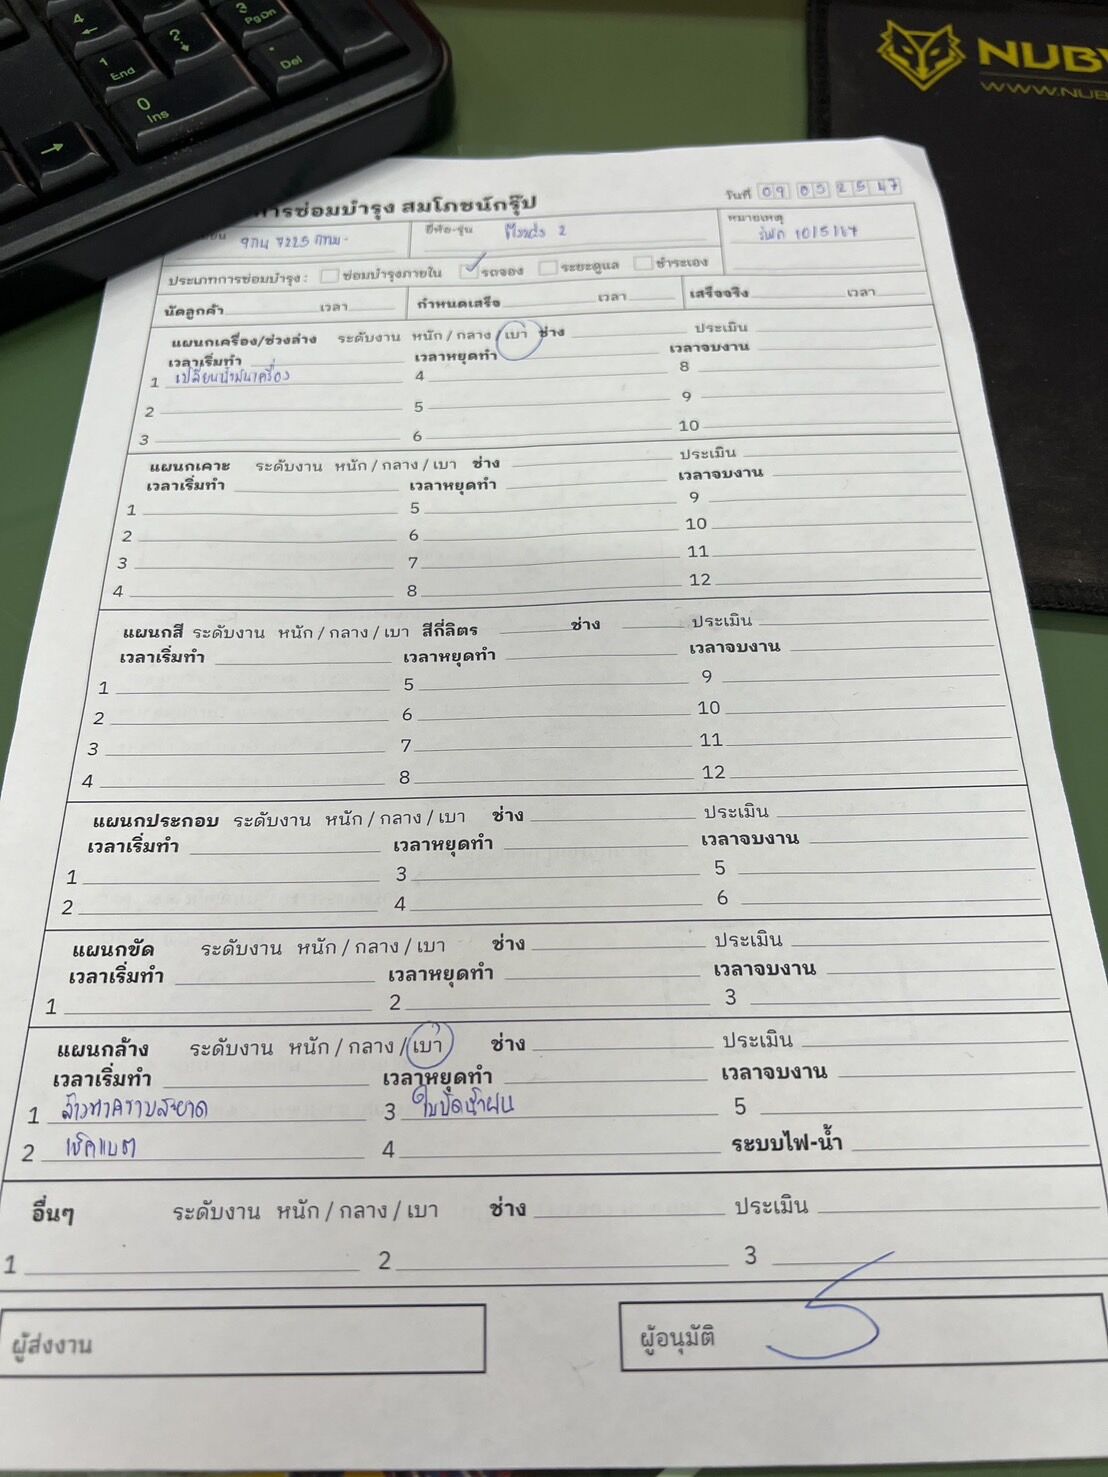 4
3
PgDn
2
1
End
.
Del
0
Ins
NUB
WWW.NUB
การซ่อมบำรุง สมโภชน์กรุ๊ป
วันที่ 09 05 2547
9กน 7225 กทม.
ยี่ห้อ-รุ่น 2
หมายเหตุ
10/5/67
ประเภทการซ่อมบำรุง : ซ่อมบำรุงภายใน รถจอง ระยะดูแล ชำระเอง
นัดลูกค้า เวลา กำหนดเสร็จ เวลา เสร็จจริง เวลา
แผนกเครื่อง/ช่วงล่าง ระดับงาน หนัก / กลาง / เบา ช่าง ประเมิน
เวลาเริ่มทำ เวลาหยุดทำ เวลาจบงาน
1 เปลี่ยนน้ำมันเครื่อง 4 8
2 5 9
3 6 10
แผนกเคาะ ระดับงาน หนัก / กลาง / เบา ช่าง ประเมิน
เวลาเริ่มทำ เวลาหยุดทำ เวลาจบงาน
1 5 9
2 6 10
3 7 11
4 8 12
แผนกสี ระดับงาน หนัก / กลาง / เบา สีกี่ลิตร ช่าง ประเมิน
เวลาเริ่มทำ เวลาหยุดทำ เวลาจบงาน
1 5 9
2 6 10
3 7 11
4 8 12
แผนกประกอบ ระดับงาน หนัก / กลาง / เบา ช่าง ประเมิน
เวลาเริ่มทำ เวลาหยุดทำ เวลาจบงาน
1 3 5
2 4 6
แผนกขัด ระดับงาน หนัก / กลาง / เบา ช่าง ประเมิน
เวลาเริ่มทำ เวลาหยุดทำ เวลาจบงาน
1 2 3
แผนกล้าง ระดับงาน หนัก / กลาง / เบา ช่าง ประเมิน
เวลาเริ่มทำ เวลาหยุดทำ เวลาจบงาน
1 ล้างทำความสะอาด 3 ใบปัดน้ำฝน 5
2 เช็คแบต 4 ระบบไฟ-น้ำ
อื่นๆ ระดับงาน หนัก / กลาง / เบา ช่าง ประเมิน
1 2 3
ผู้ส่งงาน ผู้อนุมัติ